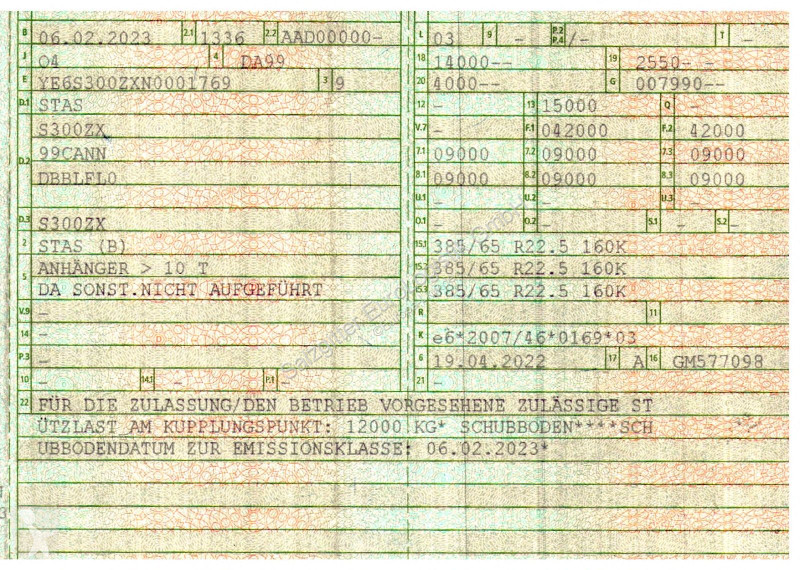 B 06.02.2023 2.1 1336 2.2 AAD00000-
J 04 4 DA99
E YE6S300ZXN0001769 3 9
D.1 STAS
S300ZX
99CANN
D.2 DBBLFL0
D.3 S300ZX
2 STAS (B)
ANHÄNGER > 10 T
5 DA SONST.NICHT AUFGEFÜHRT
V.9 -
14 -
P.3 -
10 - 14.1 - P.1 -
L 03 9 - P.2 P.4 -/- T -
18 14000-- 19 2550- -
20 4000-- G 007990--
12 - 13 15000 Q -
V.7 - F.1 042000 F.2 42000
7.1 09000 7.2 09000 7.3 09000
8.1 09000 8.2 09000 8.3 09000
U.1 - U.2 - U.3 -
O.1 - O.2 - S.1 - S.2 -
15.1 385/65 R22.5 160K
15.2 385/65 R22.5 160K
15.3 385/65 R22.5 160K
R - 11
K e6*2007/46*0169*03
6 19.04.2022 17 A 16 GM577098
21 -
22 FÜR DIE ZULASSUNG/DEN BETRIEB VORGESEHENE ZULÄSSIGE ST
ÜTZLAST AM KUPPLUNGSPUNKT: 12000 KG* SCHUBBODEN****SCH
UBBODENDATUM ZUR EMISSIONSKLASSE: 06.02.2023*